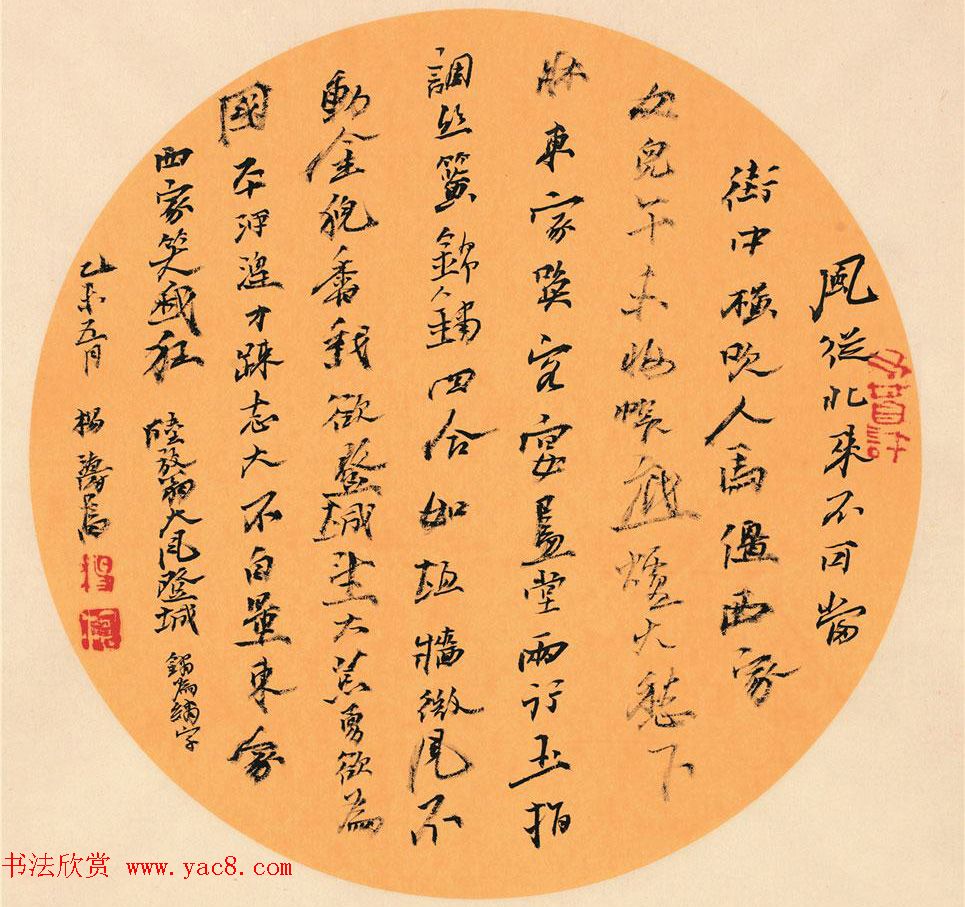 風從北來不可當
街中橫吹人馬僵西家
女兒午未妝帳底爐火愁下
牀東家喚客宴畫堂兩行玉指
調絲簧錦鏽四合如垣牆微風不
動金猊香我欲登城望大荒勇欲為
國平河湟才踈志大不自量東家
西家笑我狂 陸放翁大風登城 鏽為繡字
乙未五月 楊濤書
书法欣赏 www.yac8.com